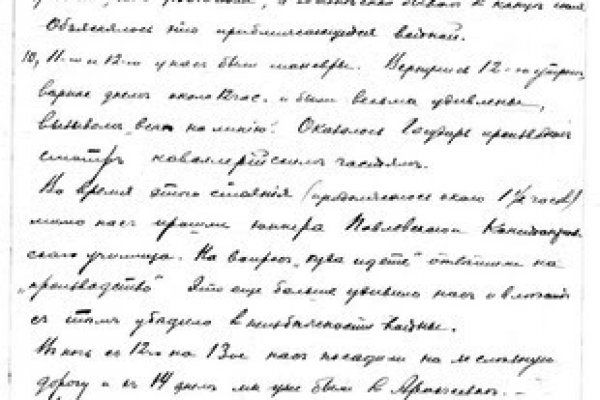 Объяснялось это приближающейся войной.
10, 11-го и 12-го у нас были маневры. Вернулись 12-го утром,
вернее днем около 12 час. и были весьма удивлены,
вызовом „всех на линию". Оказалось Государь производит
смотр кавалерийским частям.
Во время этого стояния (продолжалось около 1½ часов)
мимо нас прошли юнкера Павловского
ского училища. На вопрос „куда идете" ответили на
„производство" Это еще больше удивило нас и
с тем убедило в неизбежности войны.
В ночь с 12го на 13ое нас посадили на железную
дорогу и с 14 днем мы уже были в